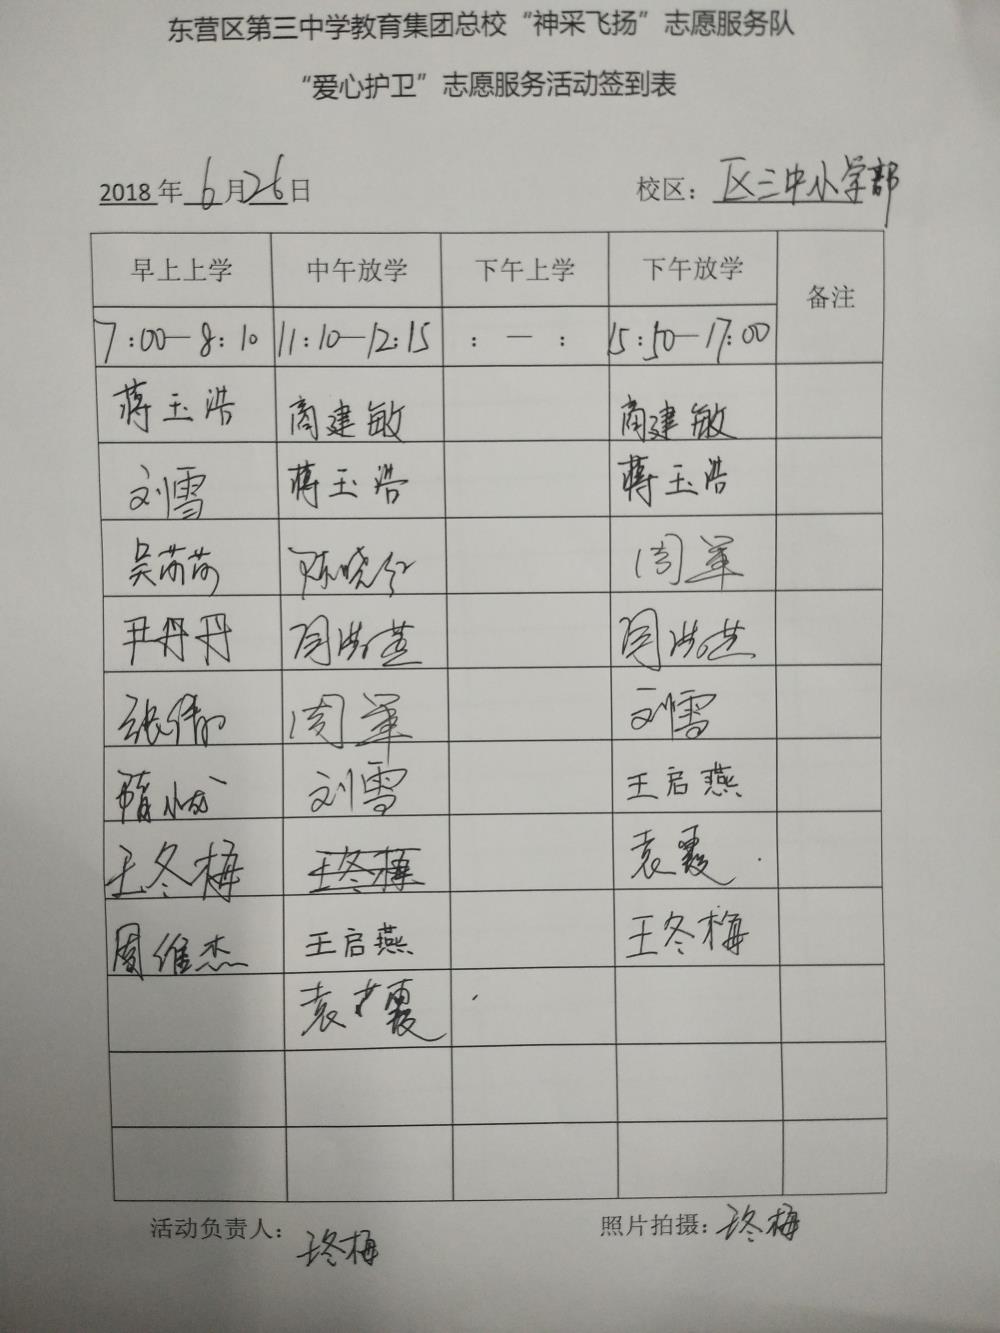 东营区第三中学教育集团总校“神采飞扬”志愿服务队
“爱心护卫”志愿服务活动签到表
2018年6月26日 校区：区三中小学部
早上上学 中午放学 下午上学 下午放学 备注
7:00—8:10 11:10—12:15 :—: 15:50—17:00
蒋玉浩 商建敏 商建敏
刘雪 蒋玉浩 蒋玉浩
吴芮芮 陈晓红 周军
尹丹丹 周洪燕 周洪燕
张倩 周军 刘雪
隋小龙 刘雪 王启燕
王冬梅 王冬梅 袁霞
周维杰 王启燕 王冬梅
袁霞
活动负责人：王冬梅 照片拍摄：王冬梅